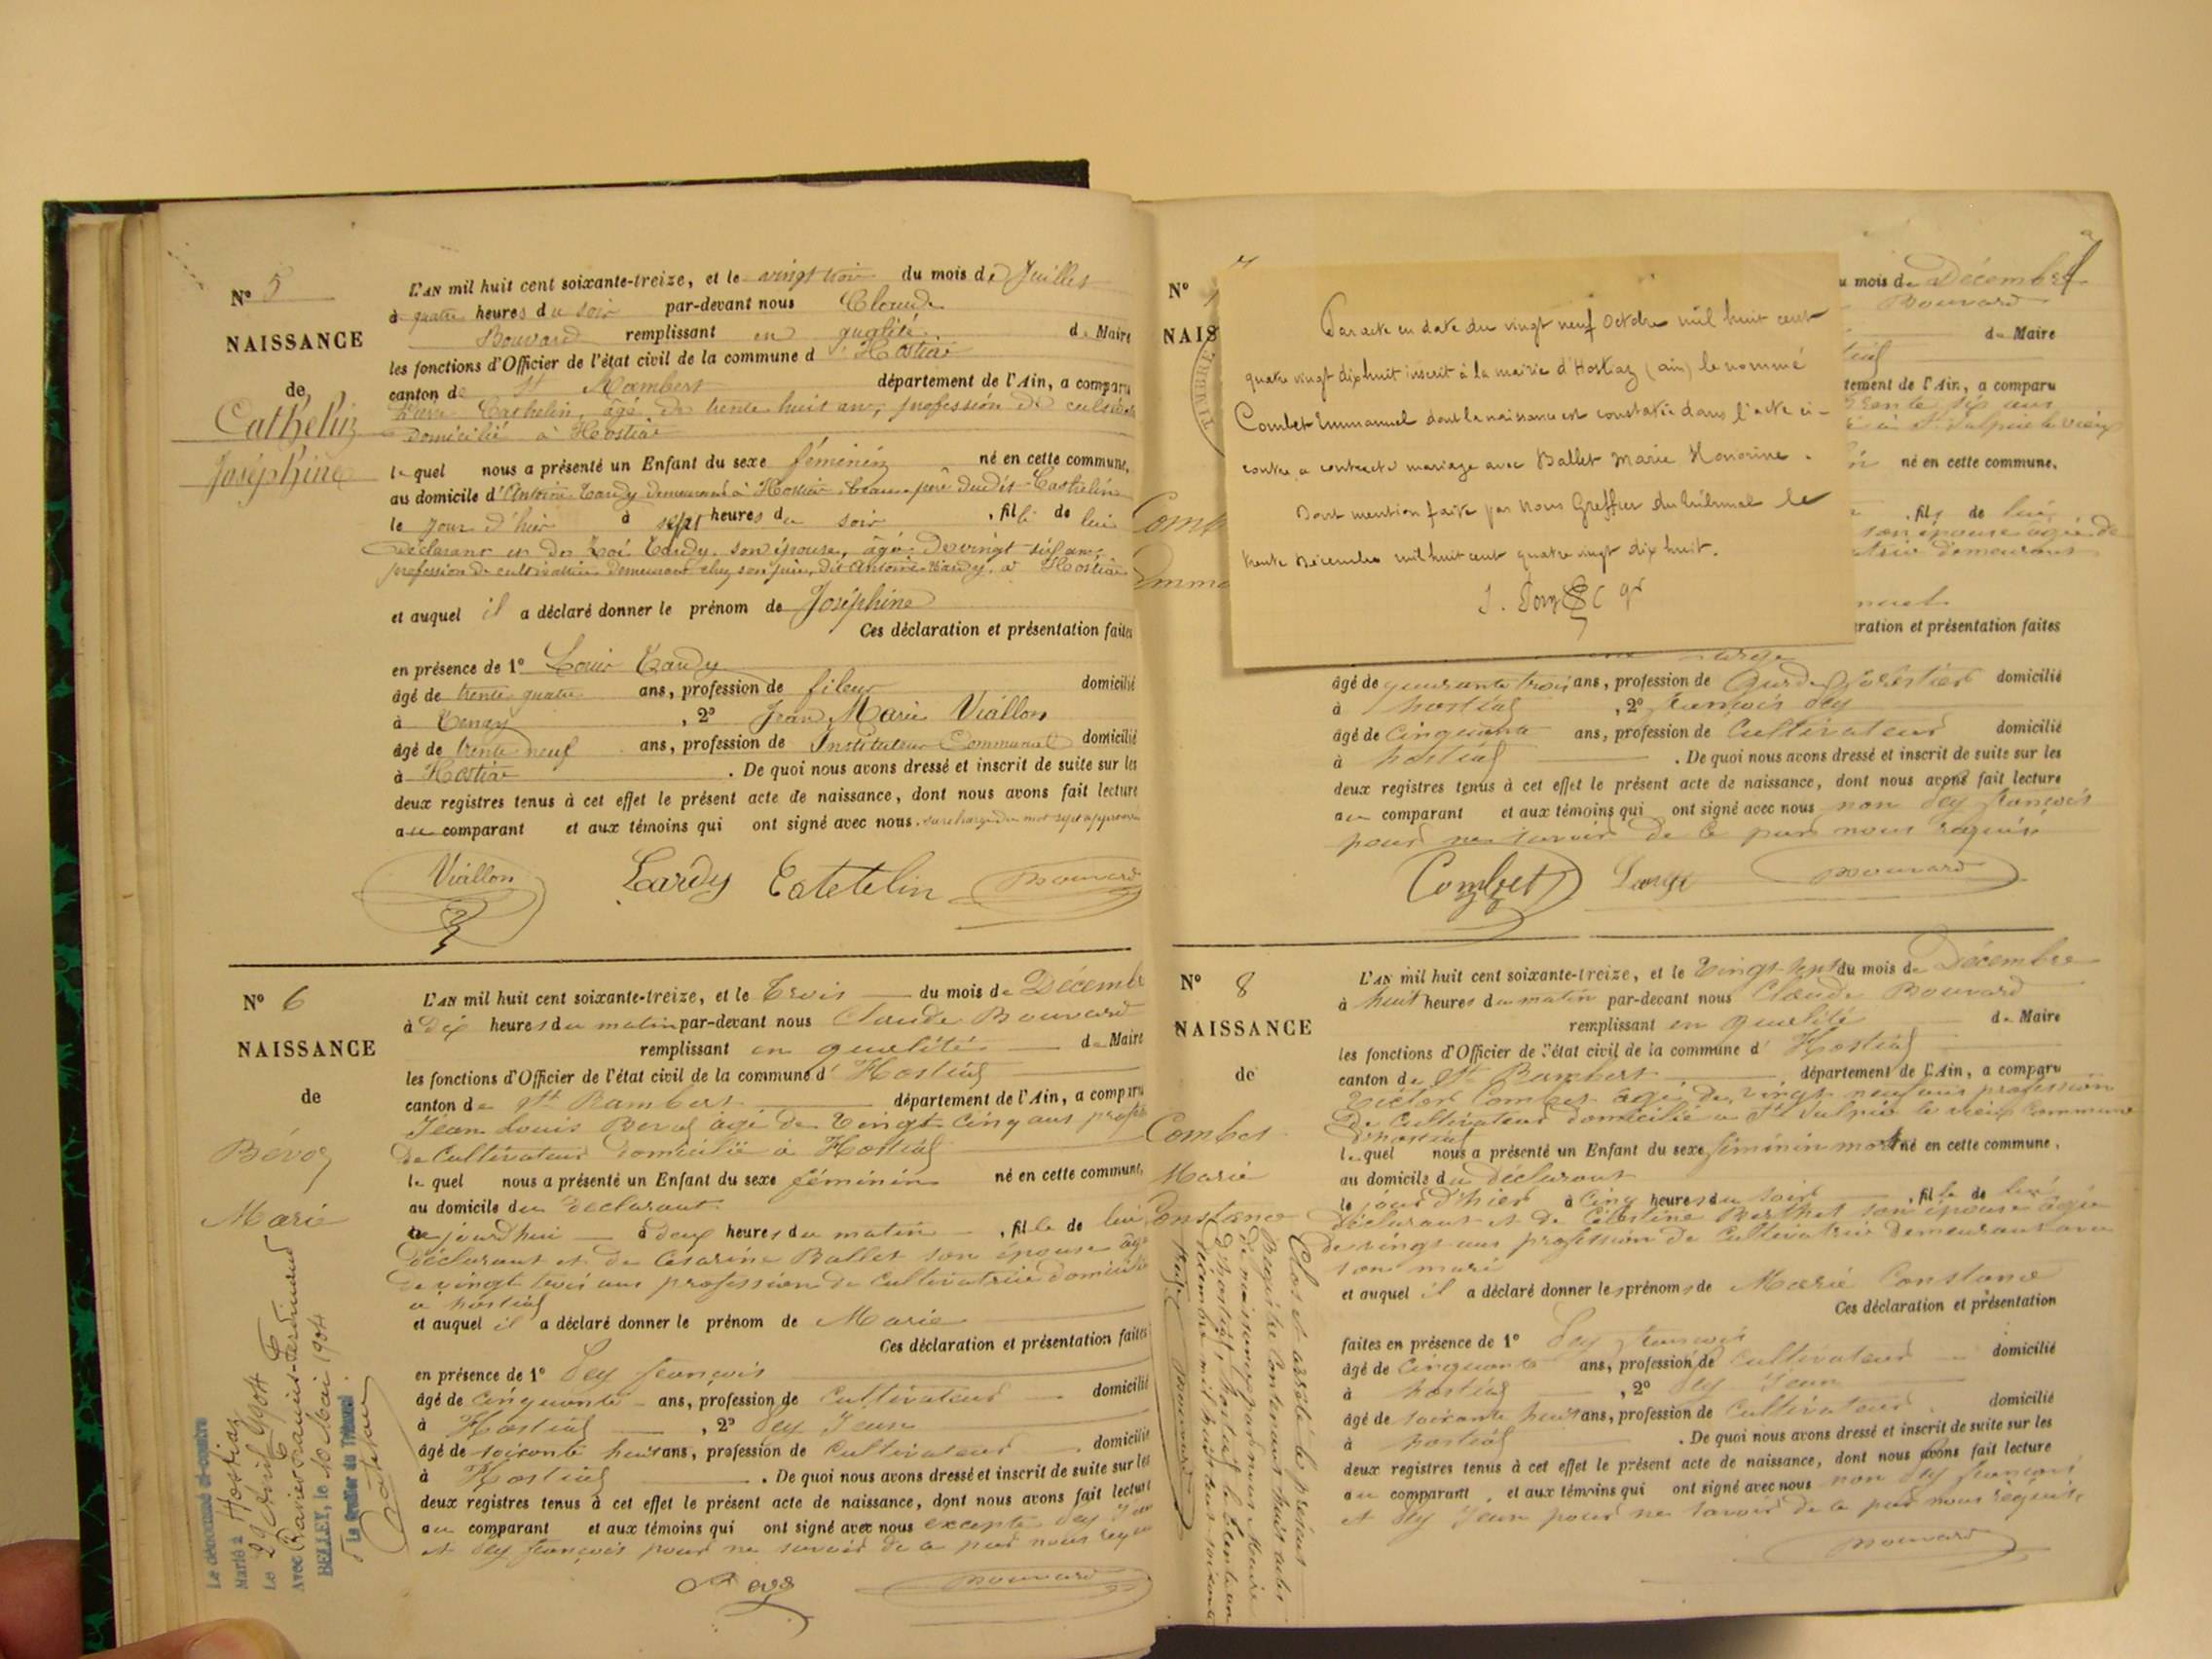 N° 5
NAISSANCE
de
Cathelin
Joséphine
L'AN mil huit cent soixante-treize, et le vingt trois du mois de Juillet
à quatre heures du soir par-devant nous Claude
Bouvard remplissant en qualité de Maire
les fonctions d'Officier de l'état civil de la commune d'Hostiaz
canton de St Rambert département de l'Ain, a comparu
Cathelin, âgé de trente huit ans, profession de
domicilié à Hostiaz
lequel nous a présenté un Enfant du sexe féminin né en cette commune,
au domicile d'Antoine Tardy demeurant à Hostiaz, beau-père dudit Cathelin
le jour d'hier à sept heures du soir, fille de lui
déclarant et de Zoé Tardy son épouse, âgée de vingt six ans,
profession de cultivatrice demeurant chez son père, dit Antoine Tardy, à Hostiaz
et auquel il a déclaré donner le prénom de Joséphine
Ces déclaration et présentation faites
en présence de 1° Louis Tardy
âgé de trente quatre ans, profession de fileur domicilié
à Tenay, 2° Jean Marie Viallon
âgé de trente neuf ans, profession de Instituteur Communal domicilié
à Hostiaz. De quoi nous avons dressé et inscrit de suite sur les
deux registres tenus à cet effet le présent acte de naissance, dont nous avons fait lecture
au comparant et aux témoins qui ont signé avec nous. surcharge du mot sept approuvée
Viallon Tardy Catetelin Bouvard
N° 6
NAISSANCE
de
Bévoz
Marie
L'AN mil huit cent soixante-treize, et le Trois du mois de Décembre
à Dix heures du matin par-devant nous Claude Bouvard
remplissant en qualité de Maire
les fonctions d'Officier de l'état civil de la commune d'Hostiaz
canton de St Rambert département de l'Ain, a comparu
Jean Louis Bevoz âgé de Vingt Cinq ans
de Cultivateur domicilié à Hostiaz
lequel nous a présenté un Enfant du sexe féminin né en cette commune,
au domicile du déclarant
ce jourd'hui à deux heures du matin, fille de lui
déclarant et de Césarine Ballet son épouse âgée
de vingt trois ans profession de Cultivatrice
à hostiaz
et auquel il a déclaré donner le prénom de Marie
Ces déclaration et présentation faites
en présence de 1° Dey françois
âgé de Cinquante ans, profession de Cultivateur domicilié
à Hostiaz, 2° Dey Jean
âgé de soixante huit ans, profession de Cultivateur domicilié
à Hostiaz. De quoi nous avons dressé et inscrit de suite sur les
deux registres tenus à cet effet le présent acte de naissance, dont nous avons fait lecture
au comparant et aux témoins qui ont signé avec nous excepté Dey Jean
et Dey françois pour ne savoir de ce par nous requis
Bevoz Bouvard
Le dénommé ci-contre
Marié à Hostiaz
Le 29 Avril 1904
Avec Ravier
BELLEY, le 10 Mai 1904
Le Greffier du Tribunal
N°
NAIS
Comb
Emma
Par acte en date du vingt neuf Octobre mil huit cent
quatre vingt dix huit inscrit à la mairie d'Hostiaz (ain) le nommé
Combet Emmanuel dont la naissance est constatée dans l'acte ci-
contre a contracté mariage avec Ballet Marie Honorine.
Dont mention faite par Nous Greffier du tribunal le
trente Décembre mil huit cent quatre vingt dix huit.
u mois de Décembre
Bouvard
de Maire
tiaz
tement de l'Ain, a comparu
trente six ans
né en cette commune,
, fils de lui
son épouse âgée de
demeurant
nuel
ration et présentation faites
âgé de quarante trois ans, profession de Garde forestier domicilié
à hostiaz, 2° françois Dey
âgé de Cinquante ans, profession de Cultivateur domicilié
à hostiaz. De quoi nous avons dressé et inscrit de suite sur les
deux registres tenus à cet effet le présent acte de naissance, dont nous avons fait lecture
au comparant et aux témoins qui ont signé avec nous non Dey françois
pour ne savoir de ce par nous requis
Combet Bouvard
N° 8
NAISSANCE
de
Combet
Marie
Constance
L'AN mil huit cent soixante-treize, et le Vingt sept du mois de Décembre
à huit heures du matin par-devant nous Claude Bouvard
remplissant en qualité de Maire
les fonctions d'Officier de l'état civil de la commune d'Hostiaz
canton de St Rambert département de l'Ain, a comparu
Victor Combet âgé de vingt neuf ans profession
de Cultivateur domicilié à St Sulpice le vieux Commune
d'hostiaz
lequel nous a présenté un Enfant du sexe féminin mort né en cette commune,
au domicile du déclarant
le jour d'hier à Cinq heures du soir, fille de lui
déclarant et de Célestine Berthet son épouse âgée
de vingt ans profession de Cultivatrice demeurant avec
son mari
et auquel il a déclaré donner les prénoms de Marie Constance
Ces déclaration et présentation
faites en présence de 1° Dey françois
âgé de Cinquante ans, profession de Cultivateur domicilié
à hostiaz, 2° Dey Jean
âgé de soixante huit ans, profession de Cultivateur domicilié
à hostiaz. De quoi nous avons dressé et inscrit de suite sur les
deux registres tenus à cet effet le présent acte de naissance, dont nous avons fait lecture
au comparant, et aux témoins qui ont signé avec nous non Dey françois
et Dey Jean pour ne savoir de ce par nous requis
Bouvard
Clos et arrêté le présent
Registre Contenant huit actes
de naissance par nous Maire
d'hostiaz, hostiaz le trente un
décembre mil huit cent soixante
treize Bouvard